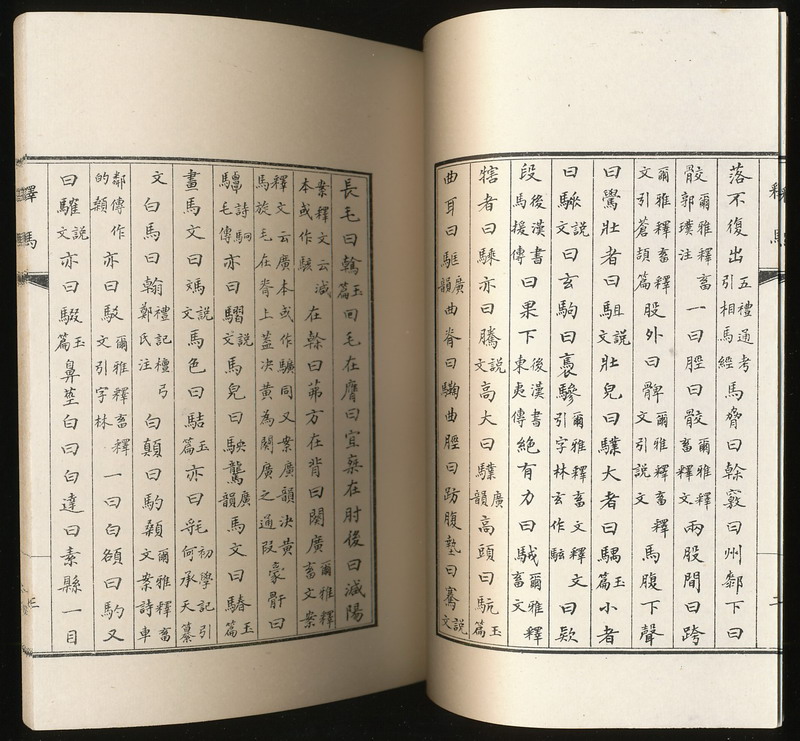 落不復出五禮通考引相馬經馬脅曰榦竅曰州鄰下曰
骹爾雅釋畜郭璞注一曰脛曰骹爾雅釋畜釋文兩股間曰跨
爾雅釋畜釋文引蒼頡篇股外曰髀爾雅釋畜釋文引說文馬腹下聲
曰鷽壯者曰駔說文壯皃曰驜大者曰騳玉篇小者
曰騃說文曰玄駒曰褭驂爾雅釋畜釋文引字林玄作駭曰款
段後漢書馬援傳曰果下後漢書東夷傳絕有力曰駥爾雅釋畜文
犗者曰騬亦曰騰說文高大曰驜廣韻高頭曰駫玉篇
曲耳曰駏廣韻曲脊曰騊曲脛曰趽腹墊曰騫說文
長毛曰䮧玉篇回毛在膺曰宜乘在肘後曰減陽
案釋文云減本或作駴在榦曰茀方在背曰闋廣爾雅釋畜文案
釋文云廣本或作驥同又案廣韻決黃馬旋毛在脊上蓋決黃為闋廣之通叚豪骭曰
驔詩駉毛傳亦曰騽說文馬皃曰駚驡廣韻馬文曰騞玉篇
畫馬文曰媽說文馬色曰䮤玉篇亦曰毦初學記引何承天纂
文白馬曰翰禮記檀弓鄭氏注白顛曰馰顙爾雅釋畜文案詩車
鄰傳作的顙亦曰駁爾雅釋畜釋文引字林一曰白頟曰馰又
曰騅說文亦曰騢玉篇鼻莖白曰白達曰素縣一目
釋馬